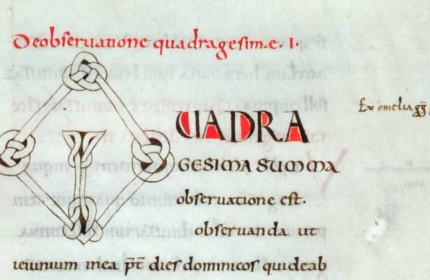 De obseruatione quadragesim.e. I.
QUADRA
GESIMA SUMMA
obseruatione est.
obseruanda ut
ieiunium inea p̄t dies dominicos qui deab
Ex omelia